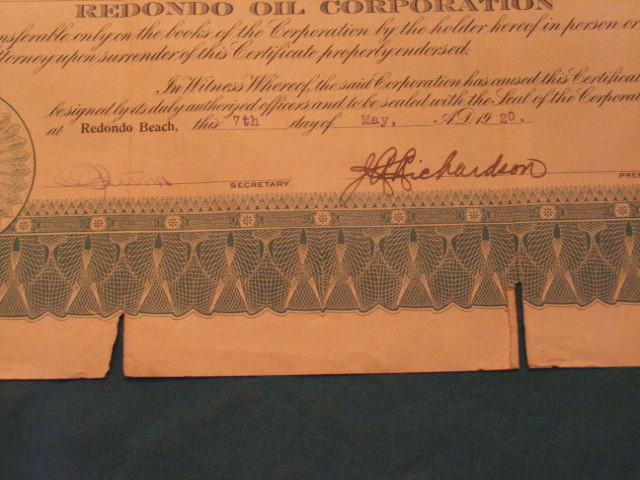 REDONDO OIL CORPORATION
nsferable only on the books of the Corporation by the holder hereof in person o
ttorney upon surrender of this Certificate properly endorsed.
In Witness Whereof, the said Corporation has caused this Certifica
be signed by its duly authorized officers and to be sealed with the Seal of the Corpora
at Redondo Beach, this 7th day of May, A.D. 1920.
J Richardson
SECRETARY. PRES